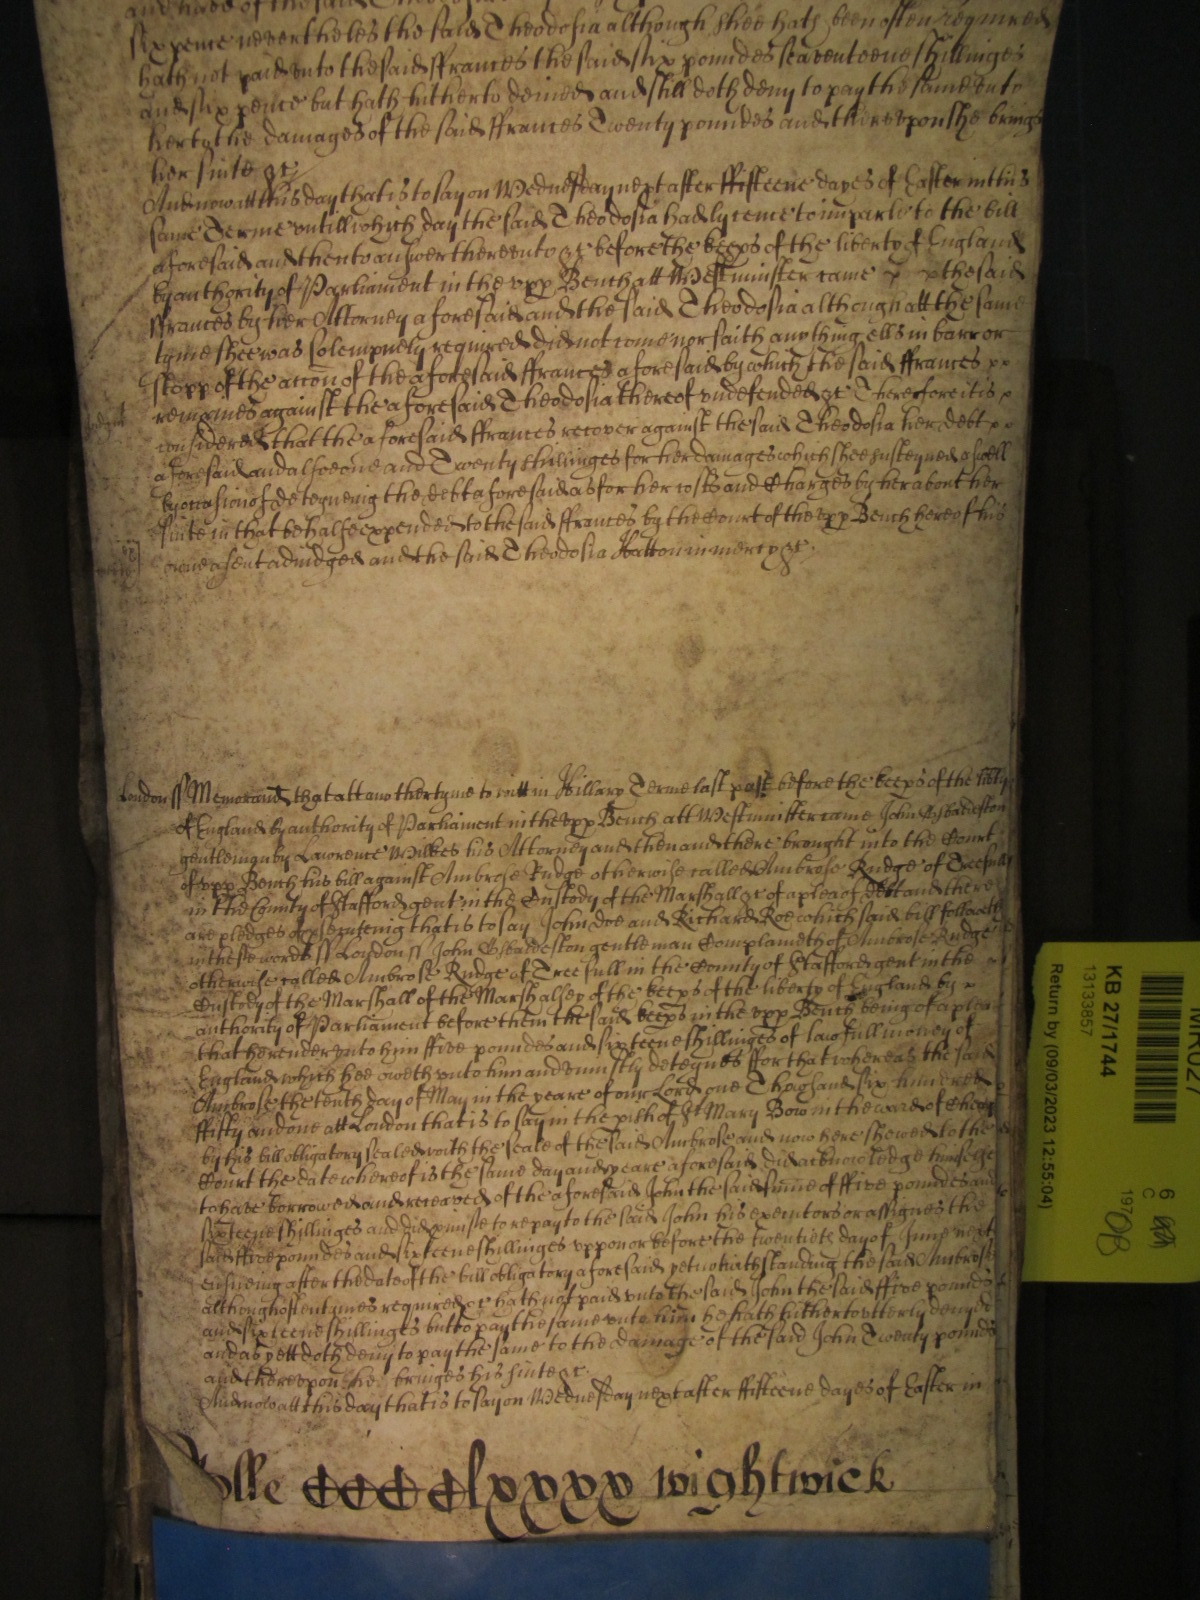 and hath of the said Theodosia
six pence neverthelesthe said Theodosia although shee hath been often required
hath not paid unto the said ffrances the said six poundes seaventeene shillinges
and six pence but hath hitherto denied and still doth deny to pay the same unto
her to the damages of the said ffrances Twenty poundes and thereupon she brings
her suite &c
And now att this day that is to say on Wednesday next after ffifteene dayes of Easter in this
same Terme untill which day the said Theodosia had lycence to imparle to the bill
aforesaid and then to answer thereunto &c before the keeps of the liberty of England
by authority of Parliament in the upp Bench att Westminster came the said
ffrances by her Attorney aforesaid and the said Theodosia although att the same
tyme shee was solempnely required did not come nor saith any thing ells in barr or
stopp of the accon of the aforesaid ffrances aforesaid by which the said ffrances
remaines against the aforesaid Theodosia thereof undefended &c Therefore it is
considered that the aforesaid ffrances recover against the said Theodosia her debt
aforesaid and alsoe one and Twenty shillinges for her damages which shee susteyned aswell
by occasion of deteyneinge the debt aforesaid as for her costs and Charges by her about her
suite in that behalfe expended to the said ffrances by the Court of the upp Bench here of his
owne assent adiudged and the said Theodosia Hatton in mercy &c
London ss Memorand that att another tyme to witt in Hillary Terme last past before the keeps of the lib
of England by authority of Parliament in the upp Bench att Westminster came John
gentleman by Lawrence Wilkes his Attorney and then and there brought into the Court
of upp Bench his bill against Ambrose Rudge otherwise called Ambrose Rudge of Treefull
in the County of Stafford gent in the Custody of the Marshall &c of a plea of debt and there
are pledges of prosecuteing that is to say John Doe and Richard Roe which said bill followeth
in these words ss London ss John gentleman Complaineth of Ambrose Rudge
otherwise called Ambrose Rudge of Treefull in the County of Stafford gent in the
Custody of the Marshall of the Marshalsey of the keeps of the liberty of England by
authority of Parliament before them the said keeps in the upp Bench being of a plea
that he render unto him ffive poundes and sixteene shillinges of lawfull money of
England which hee oweth unto him and uniustly deteynes ffor that whereas the said
Ambrose the tenth day of May in the yeare of our Lord one Thousand six hundred
ffifty and one att London that is to say in the pish of St Mary Bow in the ward of Cheap
by his bill obligatory sealed with the seale of the said Ambrose and now here shewed to the
Court the date whereof is the same day and yeare aforesaid did acknowledge himselfe
to have borrowed and received of the aforesaid John the said sume of ffive poundes and
sixteene shillinges and did pmise to repay to the said John his executors or assignes the
said ffive poundes and sixteene shillinges uppon or before the twentieth day of June next
ensueing after the date of the bill obligatory aforesaid yet notwithstanding the said Ambrose
although often tymes required &c hath not paid unto the said John the said ffive poundes
and sixteene shillinges but to pay the same unto him he hath hitherto utterly denyde
and as yett doth deny to pay the same to the damage of the said John Twenty pounds
and thereupon he bringes his suite &c
And now att this day that is to say on Wednesday next after ffifteene dayes of Easter in
Rolle CCCClxxxx wightwick
KB 27/1744
13133857
Return by (09/03/2023 12:55:04)
6
C